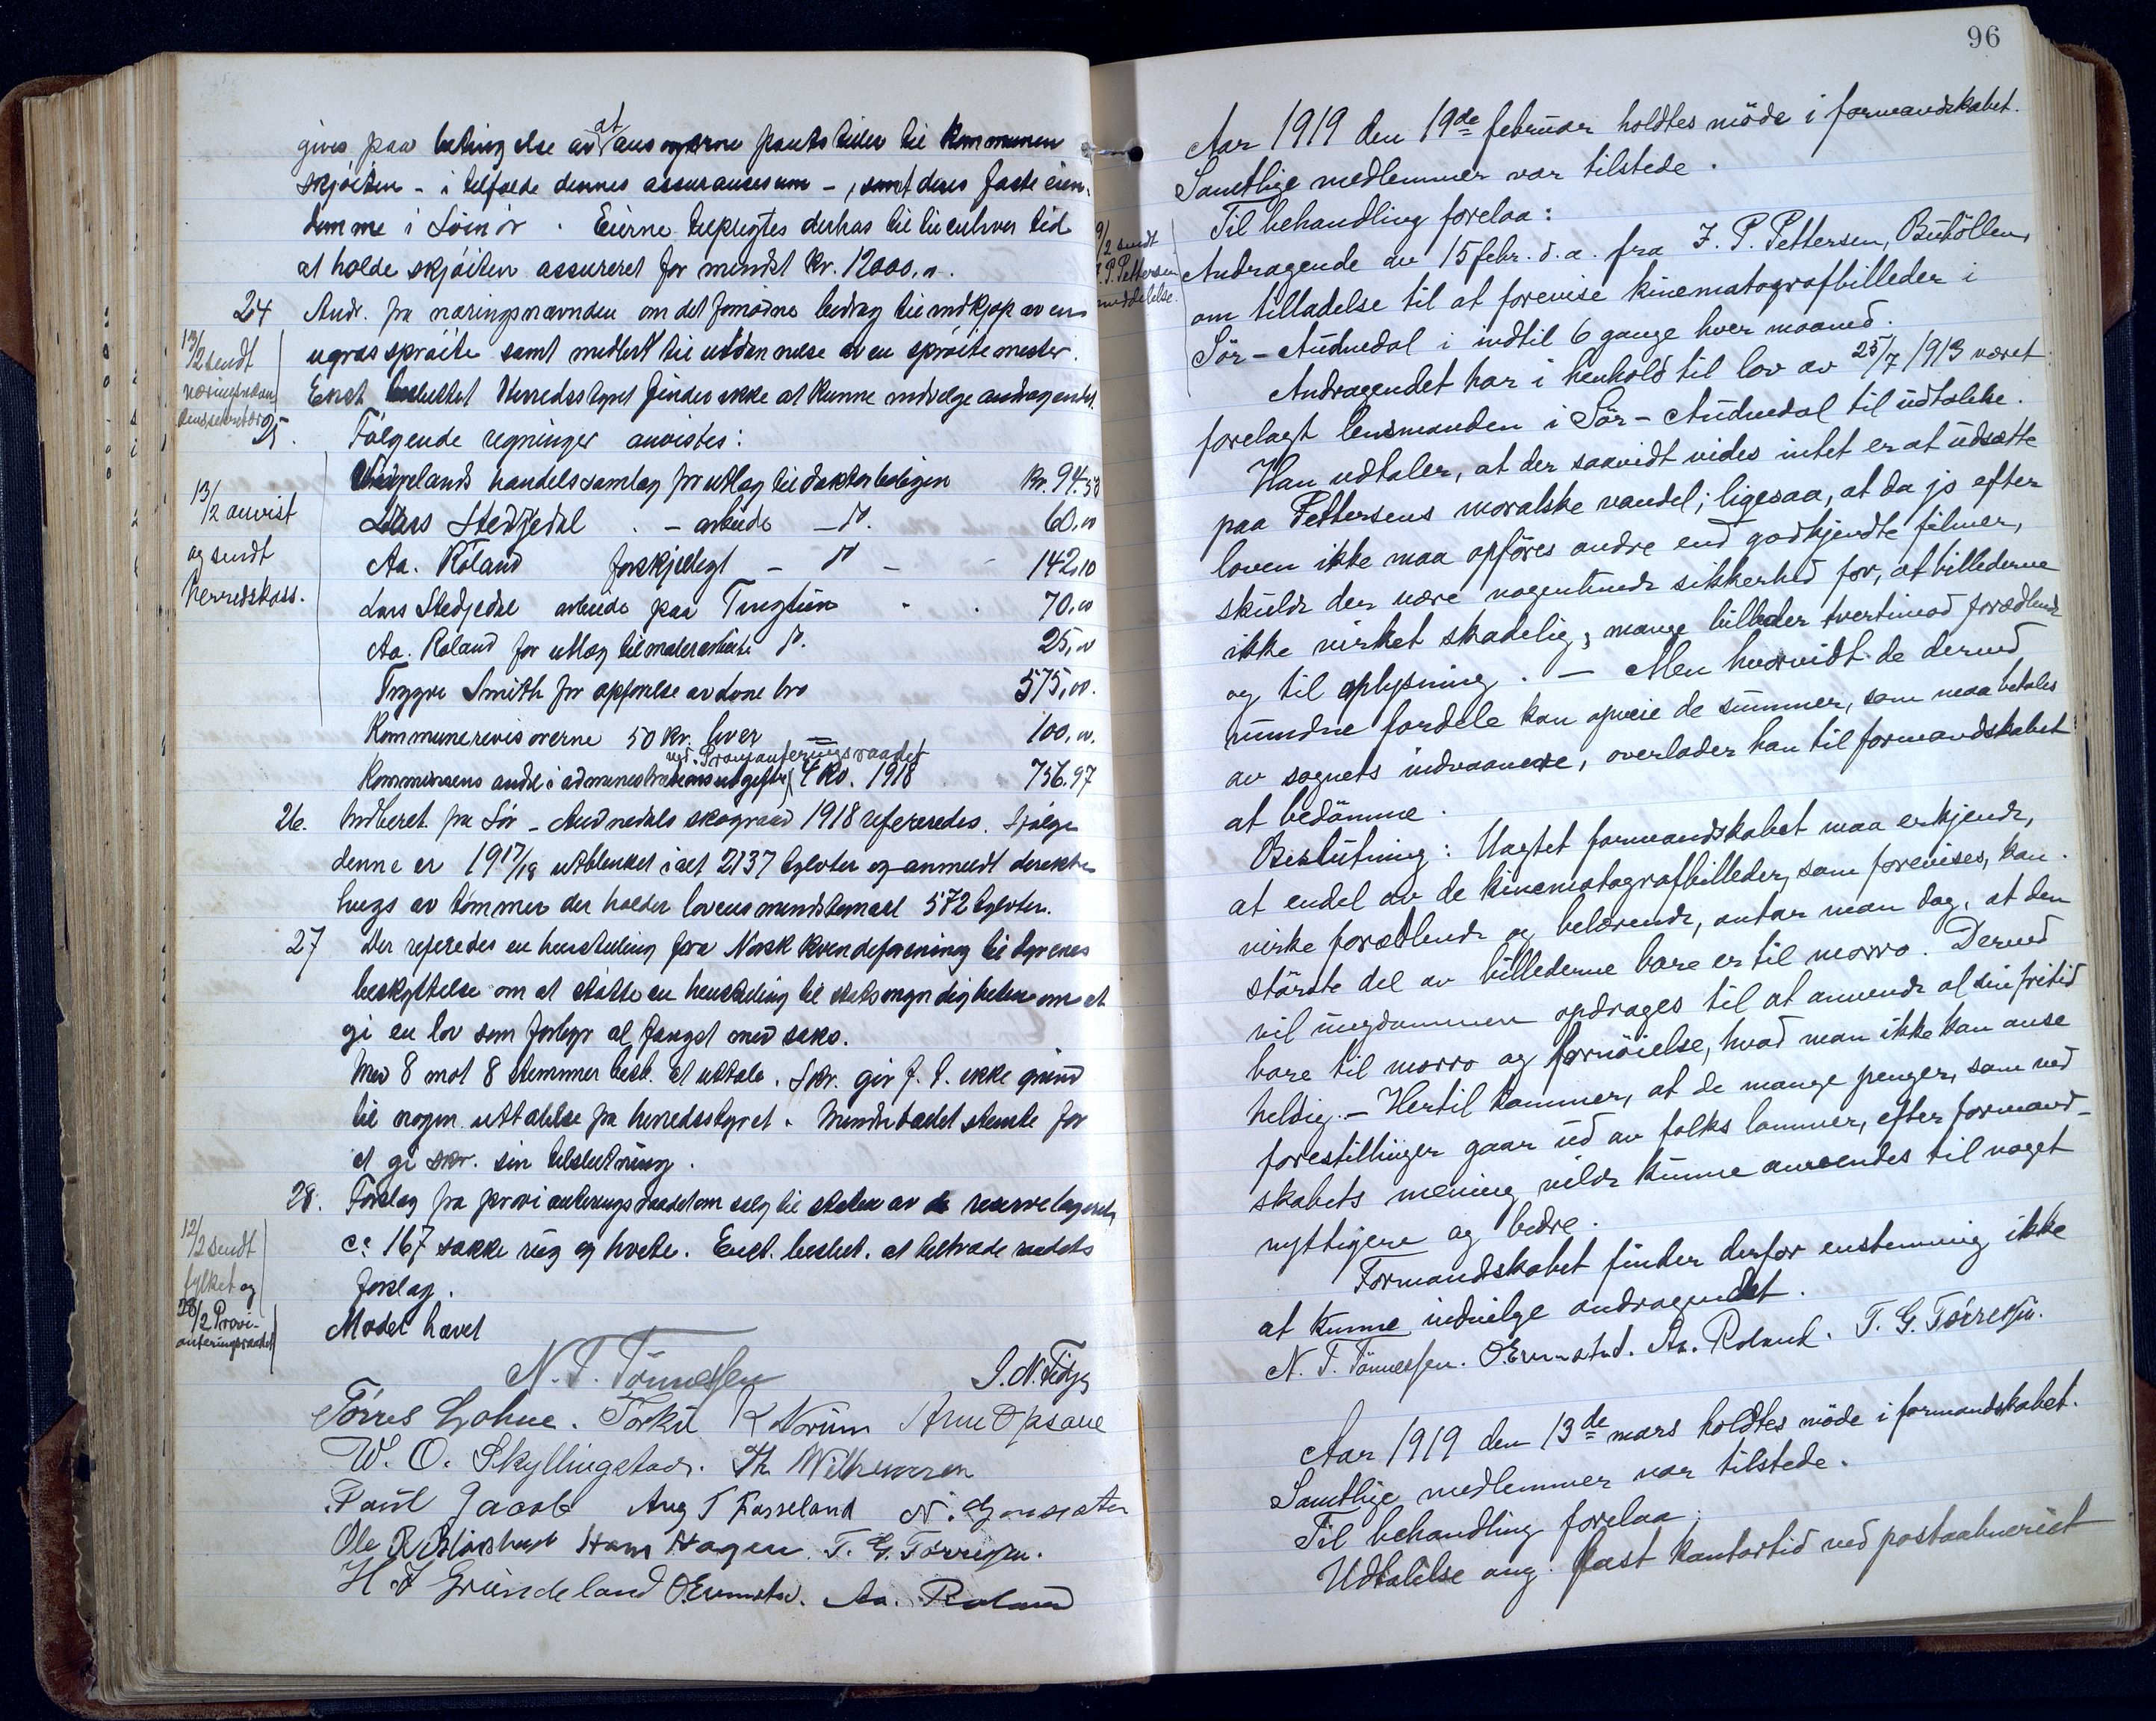 gives paa betingelse av at ansøgerne pantstiller til kommunen
skjøiten - i tilfælde dennes assurancesum -, samt deres faste eien-
domme i Svinør. Eierne tilpligtes derhos til til enhver tid
at holde skjøiten assureret for mindst kr. 12000,00.
24 Andr. fra næringsnævnden om det fornødne bidrag til indkjøp av en
13/2 sendt
næringsnævn-
dens sekretær
ugrassprøite samt midler til utdannelse av en sprøitemester.
Enst. besluttet Herredsstyret finder ikke at kunne indvilge andragendet.
25. Følgende regninger anvistes:
13/2 anvist
og sendt
herredskass.
handelssamlag for utlæg til doktorboligen kr. 94.53
Lars Stedjedal - arbeide - " 60,00
Aa. Röland forskjelligt - " - 142,10
Lars Stedjedal arbeide paa Tingtun 70,00
Aa. Roland for utlæg til malerarbeide " 25,00
Tryggve Smith for opførelse av bro 575,00.
Kommunerevisorerne 50 kr. hver 100,00.
Kommunens andel i administrationsutgifter ved Provianteringsraadet 4 kv. 1918 756.97
26. Indberet. fra Sör-Audnedals skograad 1918 refereredes. Ifølge
denne er 1917/18 utblinket ialt 2137 tylvter og anmeldt direkte
hugs av tømmer der holder lovens mindstemaal 572 tylvter.
27 Der refereredes en henstilling fra Norsk kvindeforening til dyrenes
beskyttelse om at støtte en henstilling til statsmyndigheterne om at
gi en lov som forbyr al fangst med saks.
Med 8 mot 8 stemmer besl. at uttale. Skr. gir f. t. ikke grund
til nogen uttalelse fra herredsstyret. Mindretallet stemte for
at gi skr. sin tilslutning.
28. Forslag fra provianteringsraadet om salg til staten av de reservelagrede
12/2 sendt
fylket og
28/2 Provi-
anteringsraadet
ca 167 sække rug og hvete. Enst. beslut. at tiltræde raadets
forslag.
Mødet hævet
N. T. Tönnessen S. N. Tidje
Törres Lohne. Torkil K Norum Arne Opsane
W. O. Skyllingstad. Th Wilhemsen
Paul Jacob Aug T Fasseland N.
Ole R Hans Hagen. T. G. Törresen.
H. I Gründeland O. Ernmstad. Aa. Roland
96
Aar 1919 den 19de februar holdtes möde i formandskabet.
Samtlige medlemmer var tilstede.
Til behandling forelaa:
9/2 sendt
I. P. Pettersen
meddelelse.
Andragende av 15 febr. d. a. fra I. P. Pettersen, Buhöllen,
om tilladelse til at forevise kinematografbilleder i
Sör-Audnedal i indtil 6 gange hver maaned.
Andragendet har i henhold til lov av 25/7 1913 været
forelagt lensmanden i Sör-Audnedal til udtalelse.
Han udtaler, at der saavidt vides intet er at udsætte
paa Pettersens moralske vandel; ligesaa, at da jo efter
loven ikke maa opföres andre end godkjendte filmer,
skulde der være nogenlunde sikkerhed for, at billederne
ikke virket skadelig; mange billeder tvertimod forædlende
og til oplysning. - Men hvorvidt de derved
vundne fordele kan opveie de summer, som maa betales
av sognets indvaanere, overlader han til formandskabet
at bedömme.
Beslutning: Uagtet formandskabet maa erkjende,
at endel av de kinematografbilleder, som forevises, kan
virke forædlende og belærende, antar man dog, at den
störste del av billederne bare er til morro. Derved
vil ungdommen opdrages til at anvende al sin fritid
bare til morro og fornöielse, hvad man ikke kan anse
heldig. - Hertil kommer, at de mange penger, som ved
forestillinger gaar ud av folks lommer, efter formand-
skabets mening vilde kunne anvendes til noget
nyttigere og bedre.
Formandskabet finder derfor enstemmig ikke
at kunne indvilge andragendet.
N. T. Tönnessen. O. Ernmstad. Aa. Roland. T. G. Törresen.
Aar 1919 den 13de mars holdtes möde i formandskabet.
Samtlige medlemmer var tilstede.
Til behandling forelaa:
Udtalelse ang. fast kontortid ved postaabneriet